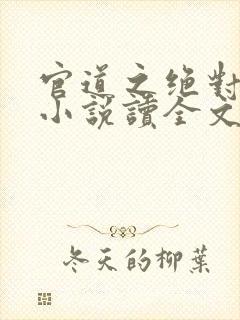 官道之绝對
小說讀全文
冬天的柳葉